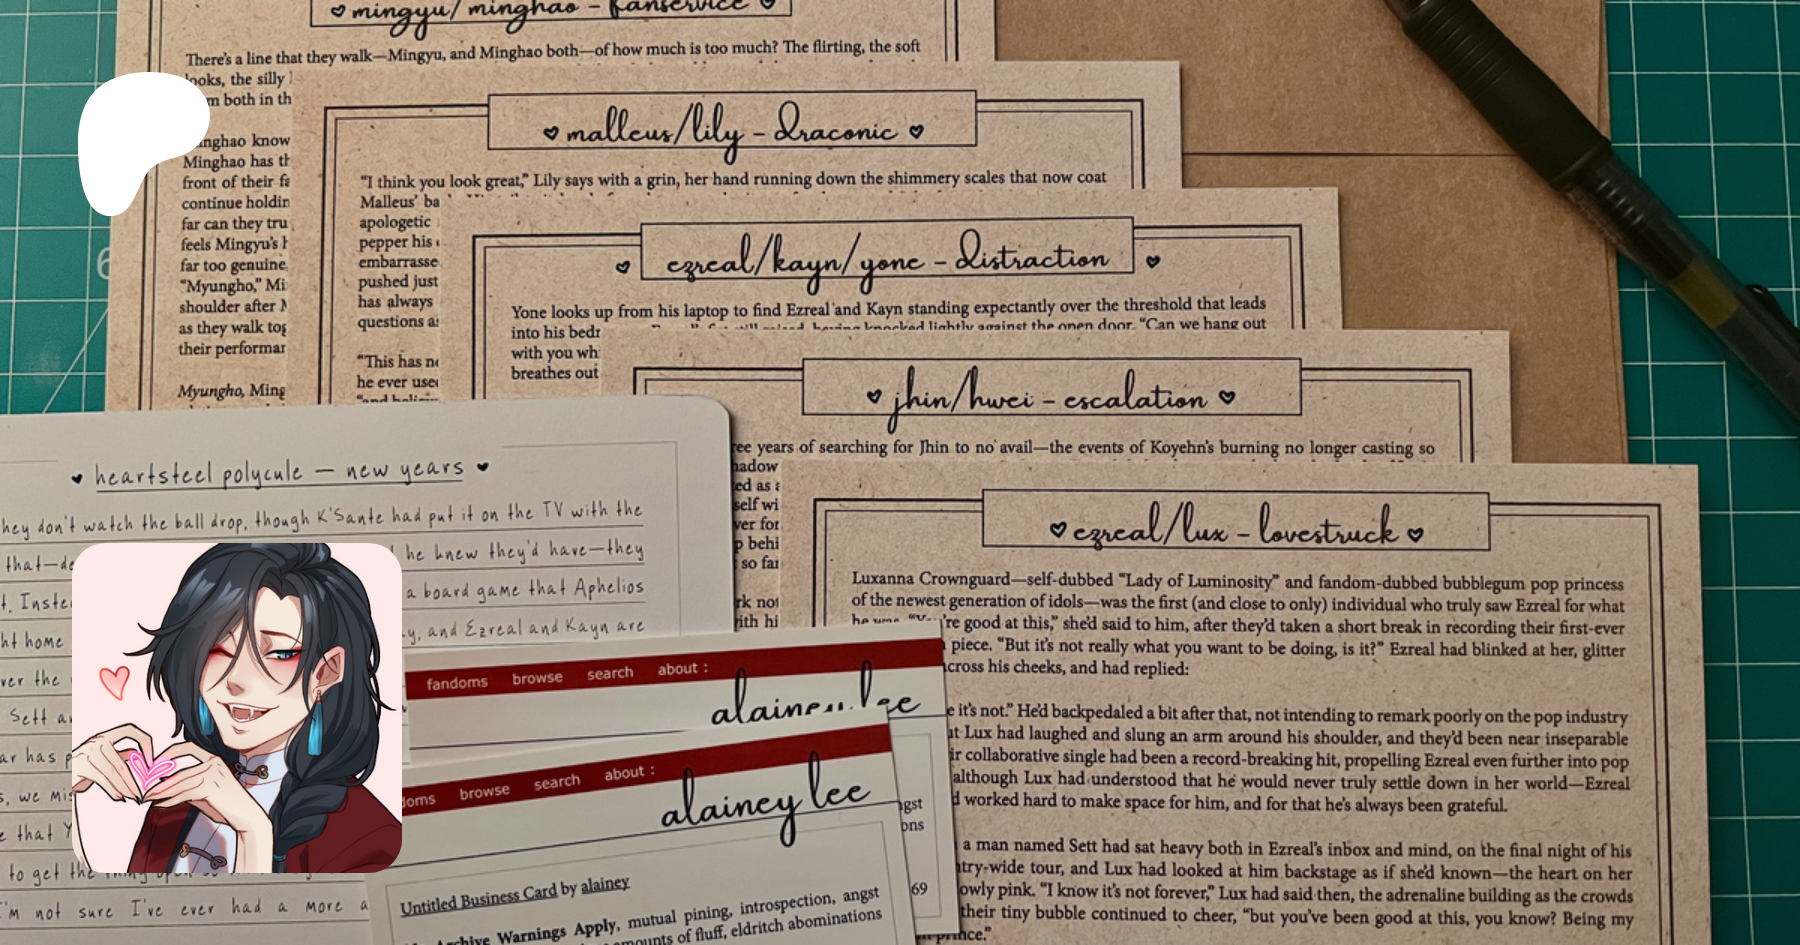 mingyu/minghao – fanservice
There's a line that they walk—Mingyu, and Minghao both—of how much is too much? The flirting, the soft
looks, the silly
m both in th
nghao know
Minghao has th
front of their fa
continue holdin
far can they tru
feels Mingyu's h
far too genuine.
"Myungho," Mi
shoulder after M
as they walk tog
their performan
Myungho, Ming
malleus/lily – draconic
"I think you look great," Lily says with a grin, her hand running down the shimmery scales that now coat
Malleus' ba
apologetic
pepper his
embarrasse
pushed just
has always
questions as
"This has ne
he ever used
ezreal/kayn/yone – distraction
Yone looks up from his laptop to find Ezreal and Kayn standing expectantly over the threshold that leads
into his bedr
knocked lightly against the open door. "Can we hang out
with you wh
breathes out
jhin/hwei – escalation
ree years of searching for Jhin to no avail—the events of Koyehn's burning no longer casting so
hadow
ed as a
self wi
ver for
p behi
so far
rk not
ith hi
ezreal/lux – lovestruck
Luxanna Crownguard—self-dubbed "Lady of Luminosity" and fandom-dubbed bubblegum pop princess
of the newest generation of idols—was the first (and close to only) individual who truly saw Ezreal for what
he was. "You're good at this," she'd said to him, after they'd taken a short break in recording their first-ever
piece. "But it's not really what you want to be doing, is it?" Ezreal had blinked at her, glitter
across his cheeks, and had replied:
e it's not." He'd backpedaled a bit after that, not intending to remark poorly on the pop industry
ut Lux had laughed and slung an arm around his shoulder, and they'd been near inseparable
ir collaborative single had been a record-breaking hit, propelling Ezreal even further into pop
although Lux had understood that he would never truly settle down in her world—Ezreal
d worked hard to make space for him, and for that he's always been grateful.
a man named Sett had sat heavy both in Ezreal's inbox and mind, on the final night of his
ntry-wide tour, and Lux had looked at him backstage as if she'd known—the heart on her
owly pink. "I know it's not forever," Lux had said then, the adrenaline building as the crowds
their tiny bubble continued to cheer, "but you've been good at this, you know? Being my
prince."
heartsteel polycule — new years
hey don't watch the ball drop, though K'Sante had put it on the TV with the
that—de
he knew they'd have—they
t. Inste
a board game that Aphelios
ht home
y, and Ezreal and Kayn are
ver the
Sett a
ar has p
s, we mis
e that Y
to get the thing open
I'm not sure I've ever had a more a
fandoms browse search about :
alainey lee
doms browse search about :
alainey lee
Untitled Business Card by alainey
Archive Warnings Apply, mutual pining, introspection, angst
amounts of fluff, eldritch abominations
ngst
ons
69